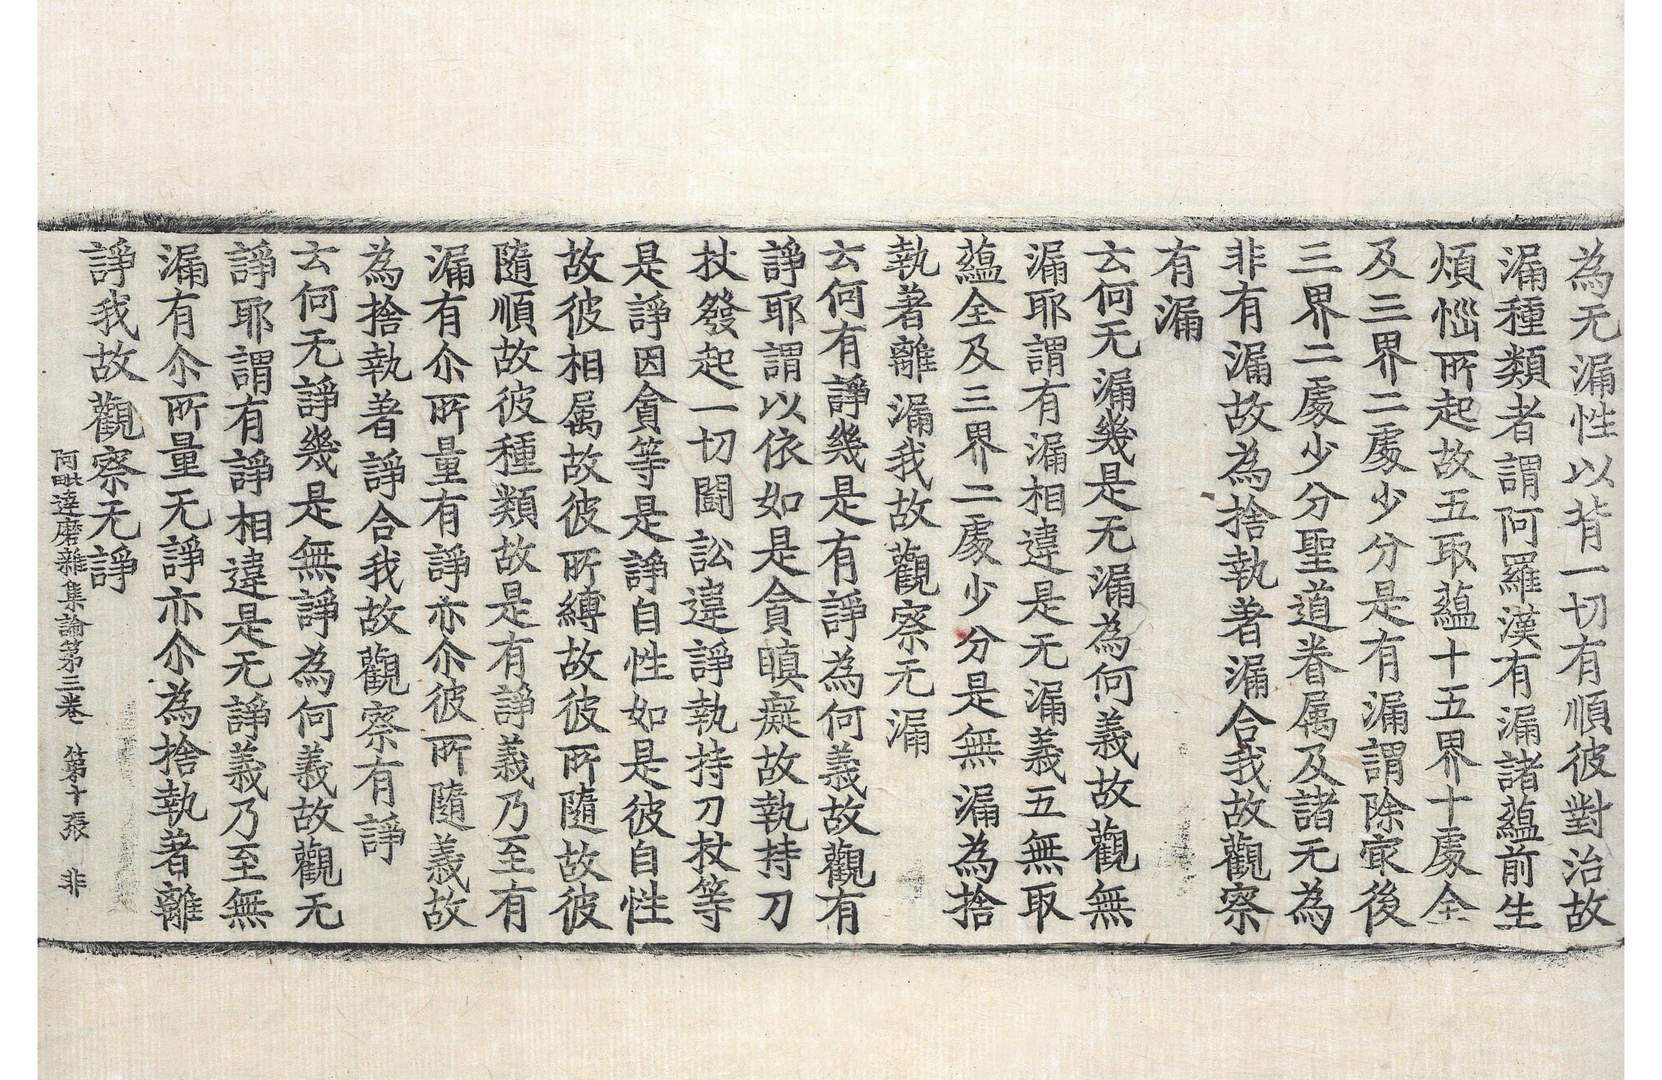 為无漏性以背一切有順彼對治故
漏種類者謂阿羅漢有漏諸蘊前生
煩惱所起故五取蘊十五界十處全
及三界二處少分是有漏謂除㝡後
三界二處少分聖道眷属及諸无為
非有漏故為捨執著漏合我故觀察
有漏
云何无漏幾是无漏為何義故觀無
漏耶謂有漏相違是无漏義五無取
蘊全及三界二處少分是無漏為捨
執著離漏我故觀察无漏
云何有諍幾是有諍為何義故觀有
諍耶謂以依如是貪瞋癡故執持刀
杖發起一切鬪訟違諍執持刀杖等
是諍因貪等是諍自性如是彼自性
故彼相属故彼所縛故彼所隨故彼
隨順故彼種類故是有諍義乃至有
漏有尒所量有諍亦尒彼所隨義故
為捨執著諍合我故觀察有諍
云何无諍幾是無諍為何義故觀无
諍耶謂有諍相違是无諍義乃至無
漏有尒所量无諍亦尒為捨執著離
諍我故觀察无諍
阿毗達磨雜集論第三卷 第十張 非